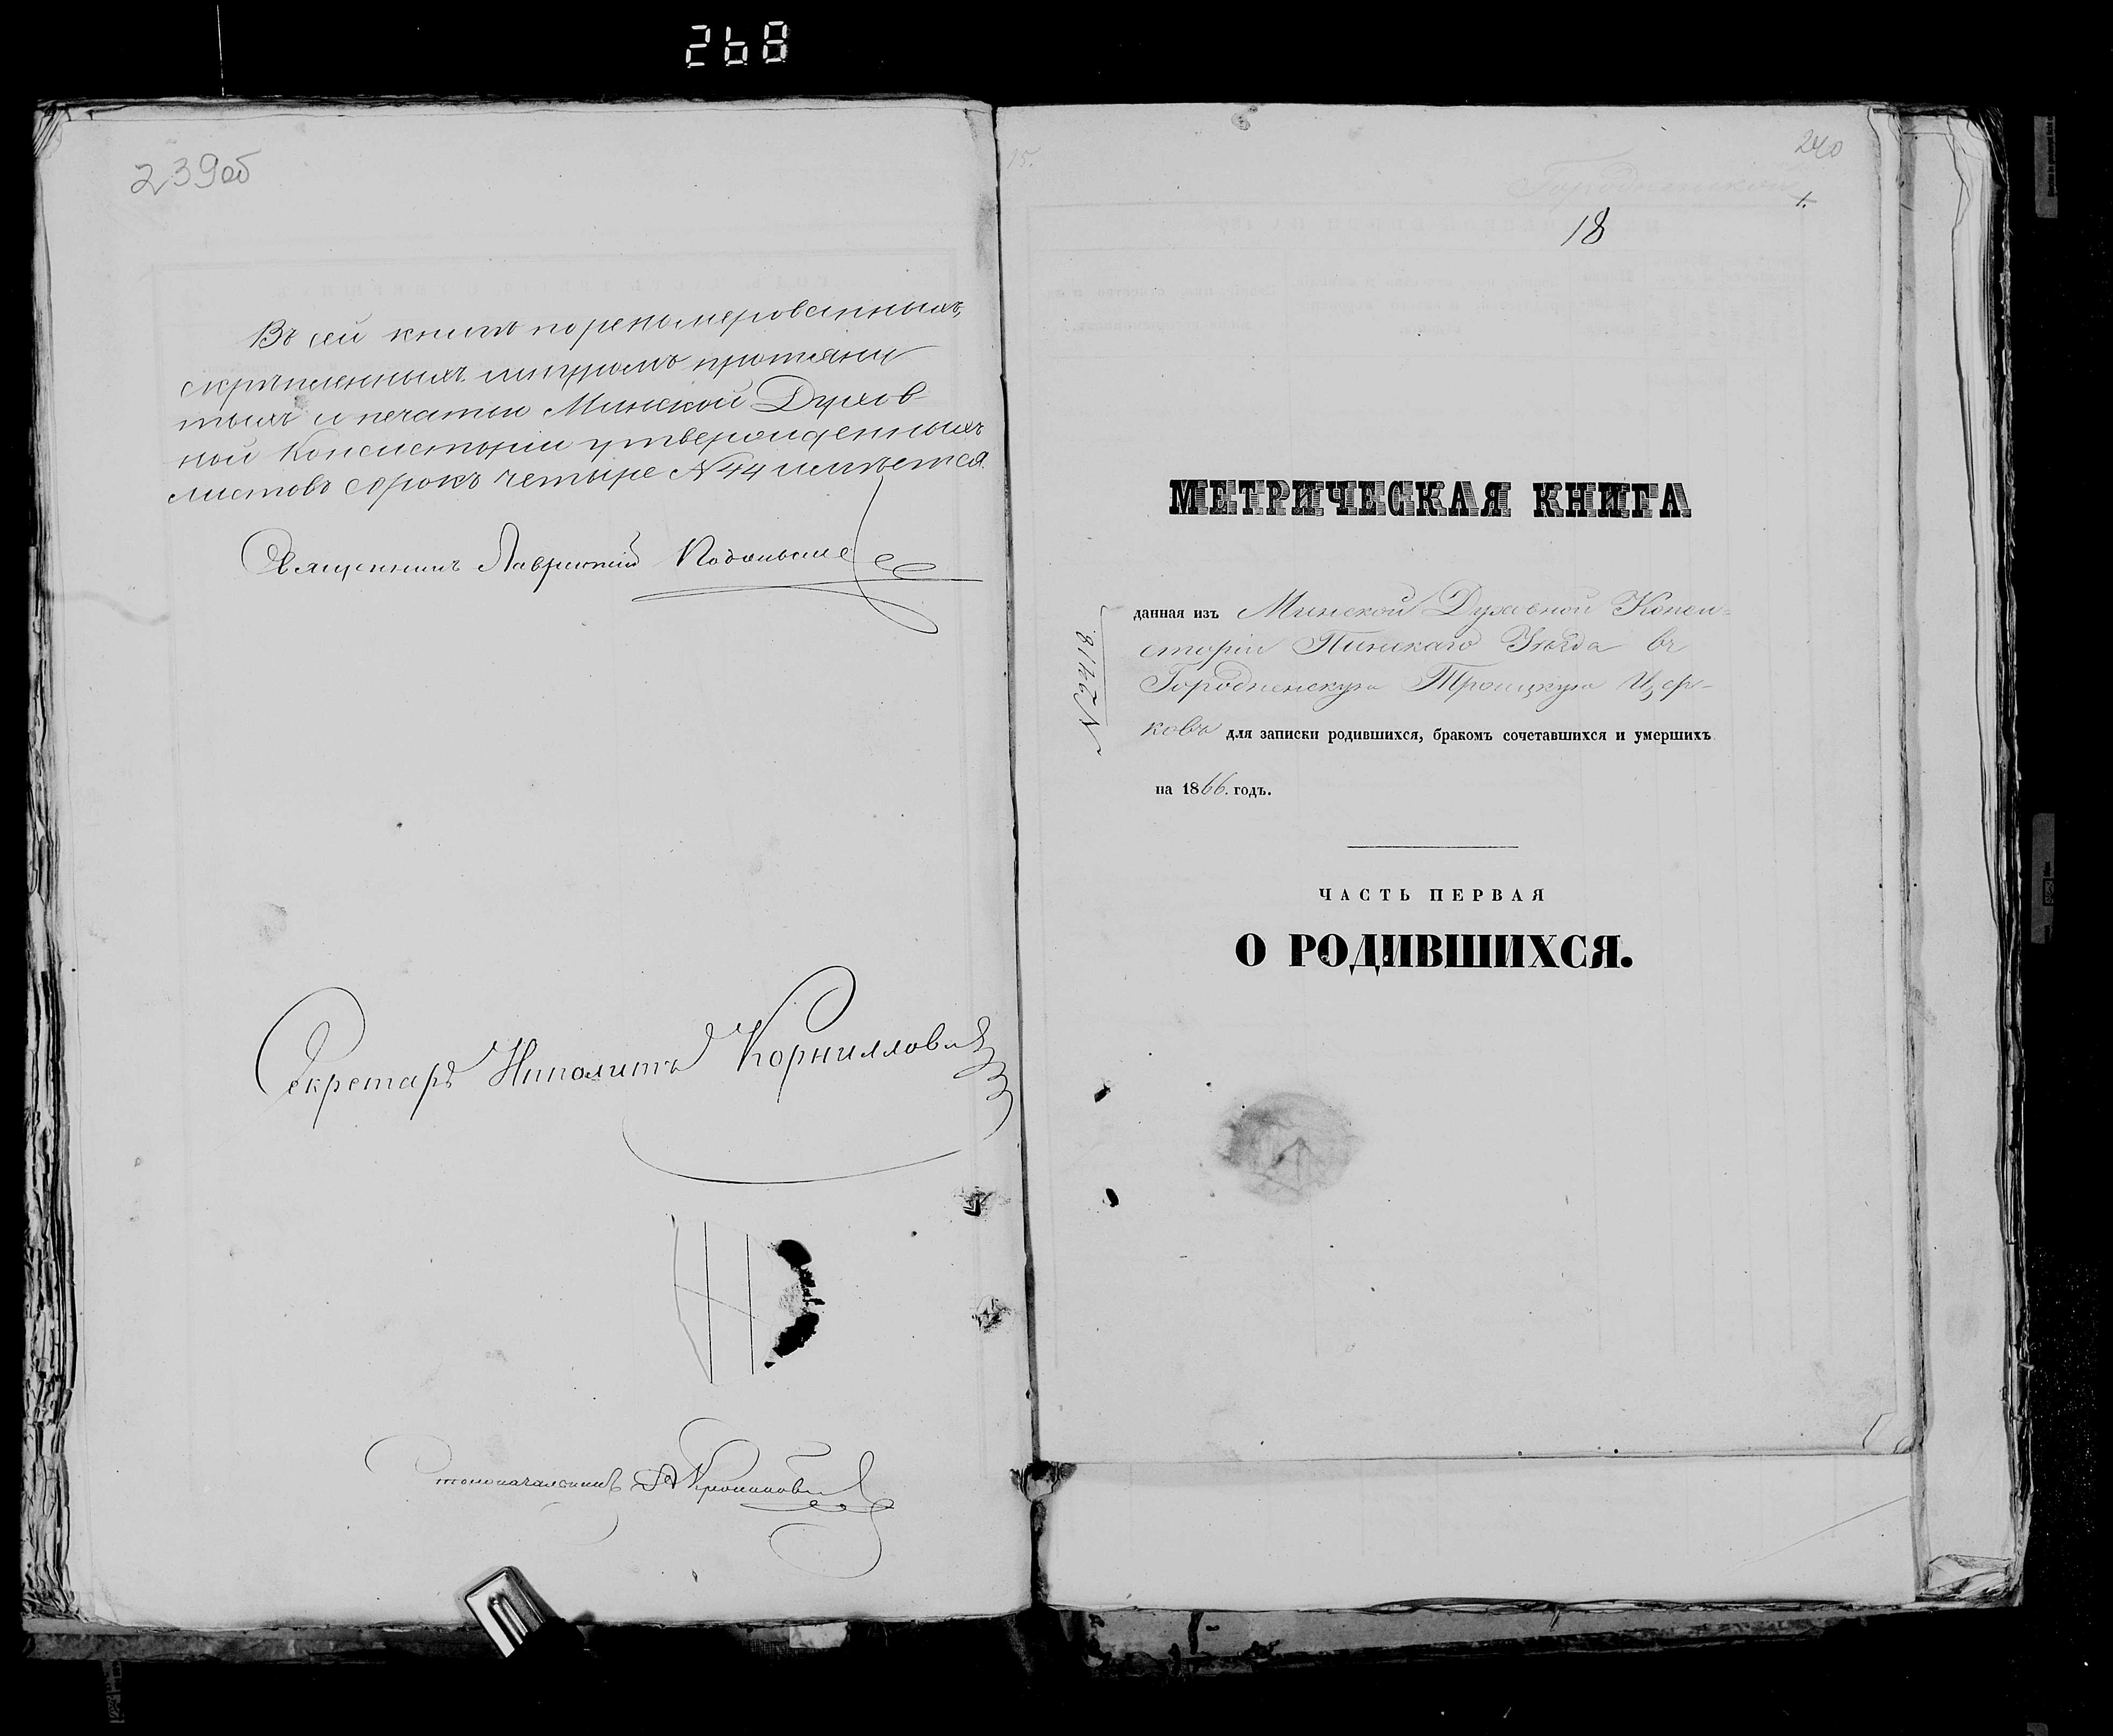 268
239об
Въ сей книгѣ перенумерованныхъ,
скрѣпленныхъ шнуромъ протяну
тыхъ и печатью Минской Духов
ной Консисторіи утвержденныхъ
листовъ сорокъ четыре N 44 имѣется
Священникъ Лаврентій
Секретарь Ипполитъ Корниллови
Столоначальникъ
15.
240
Городненской
1.
18
МЕТРИЧЕСКАЯ КНИГА
данная изъ Минской Духовной Конси-
сторіи Пинскаго Уѣзда въ
Городненскую Троицкую Цер-
ковь для записки родившихся, бракомъ сочетавшихся и умершихъ
на 1866. годъ.
N 2418
ЧАСТЬ ПЕРВАЯ
О РОДИВШИХСЯ.